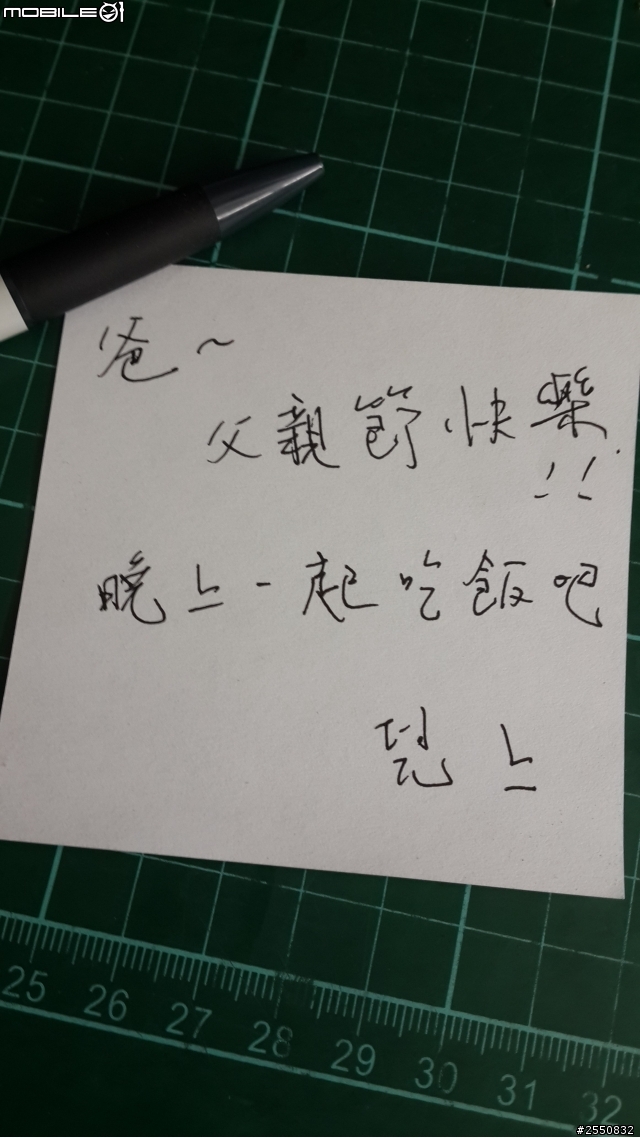 MOBILE01
爸~
父親節快樂!!
晚上一起吃飯吧
上
25 26 27 28 29 30 31 32
#2550832